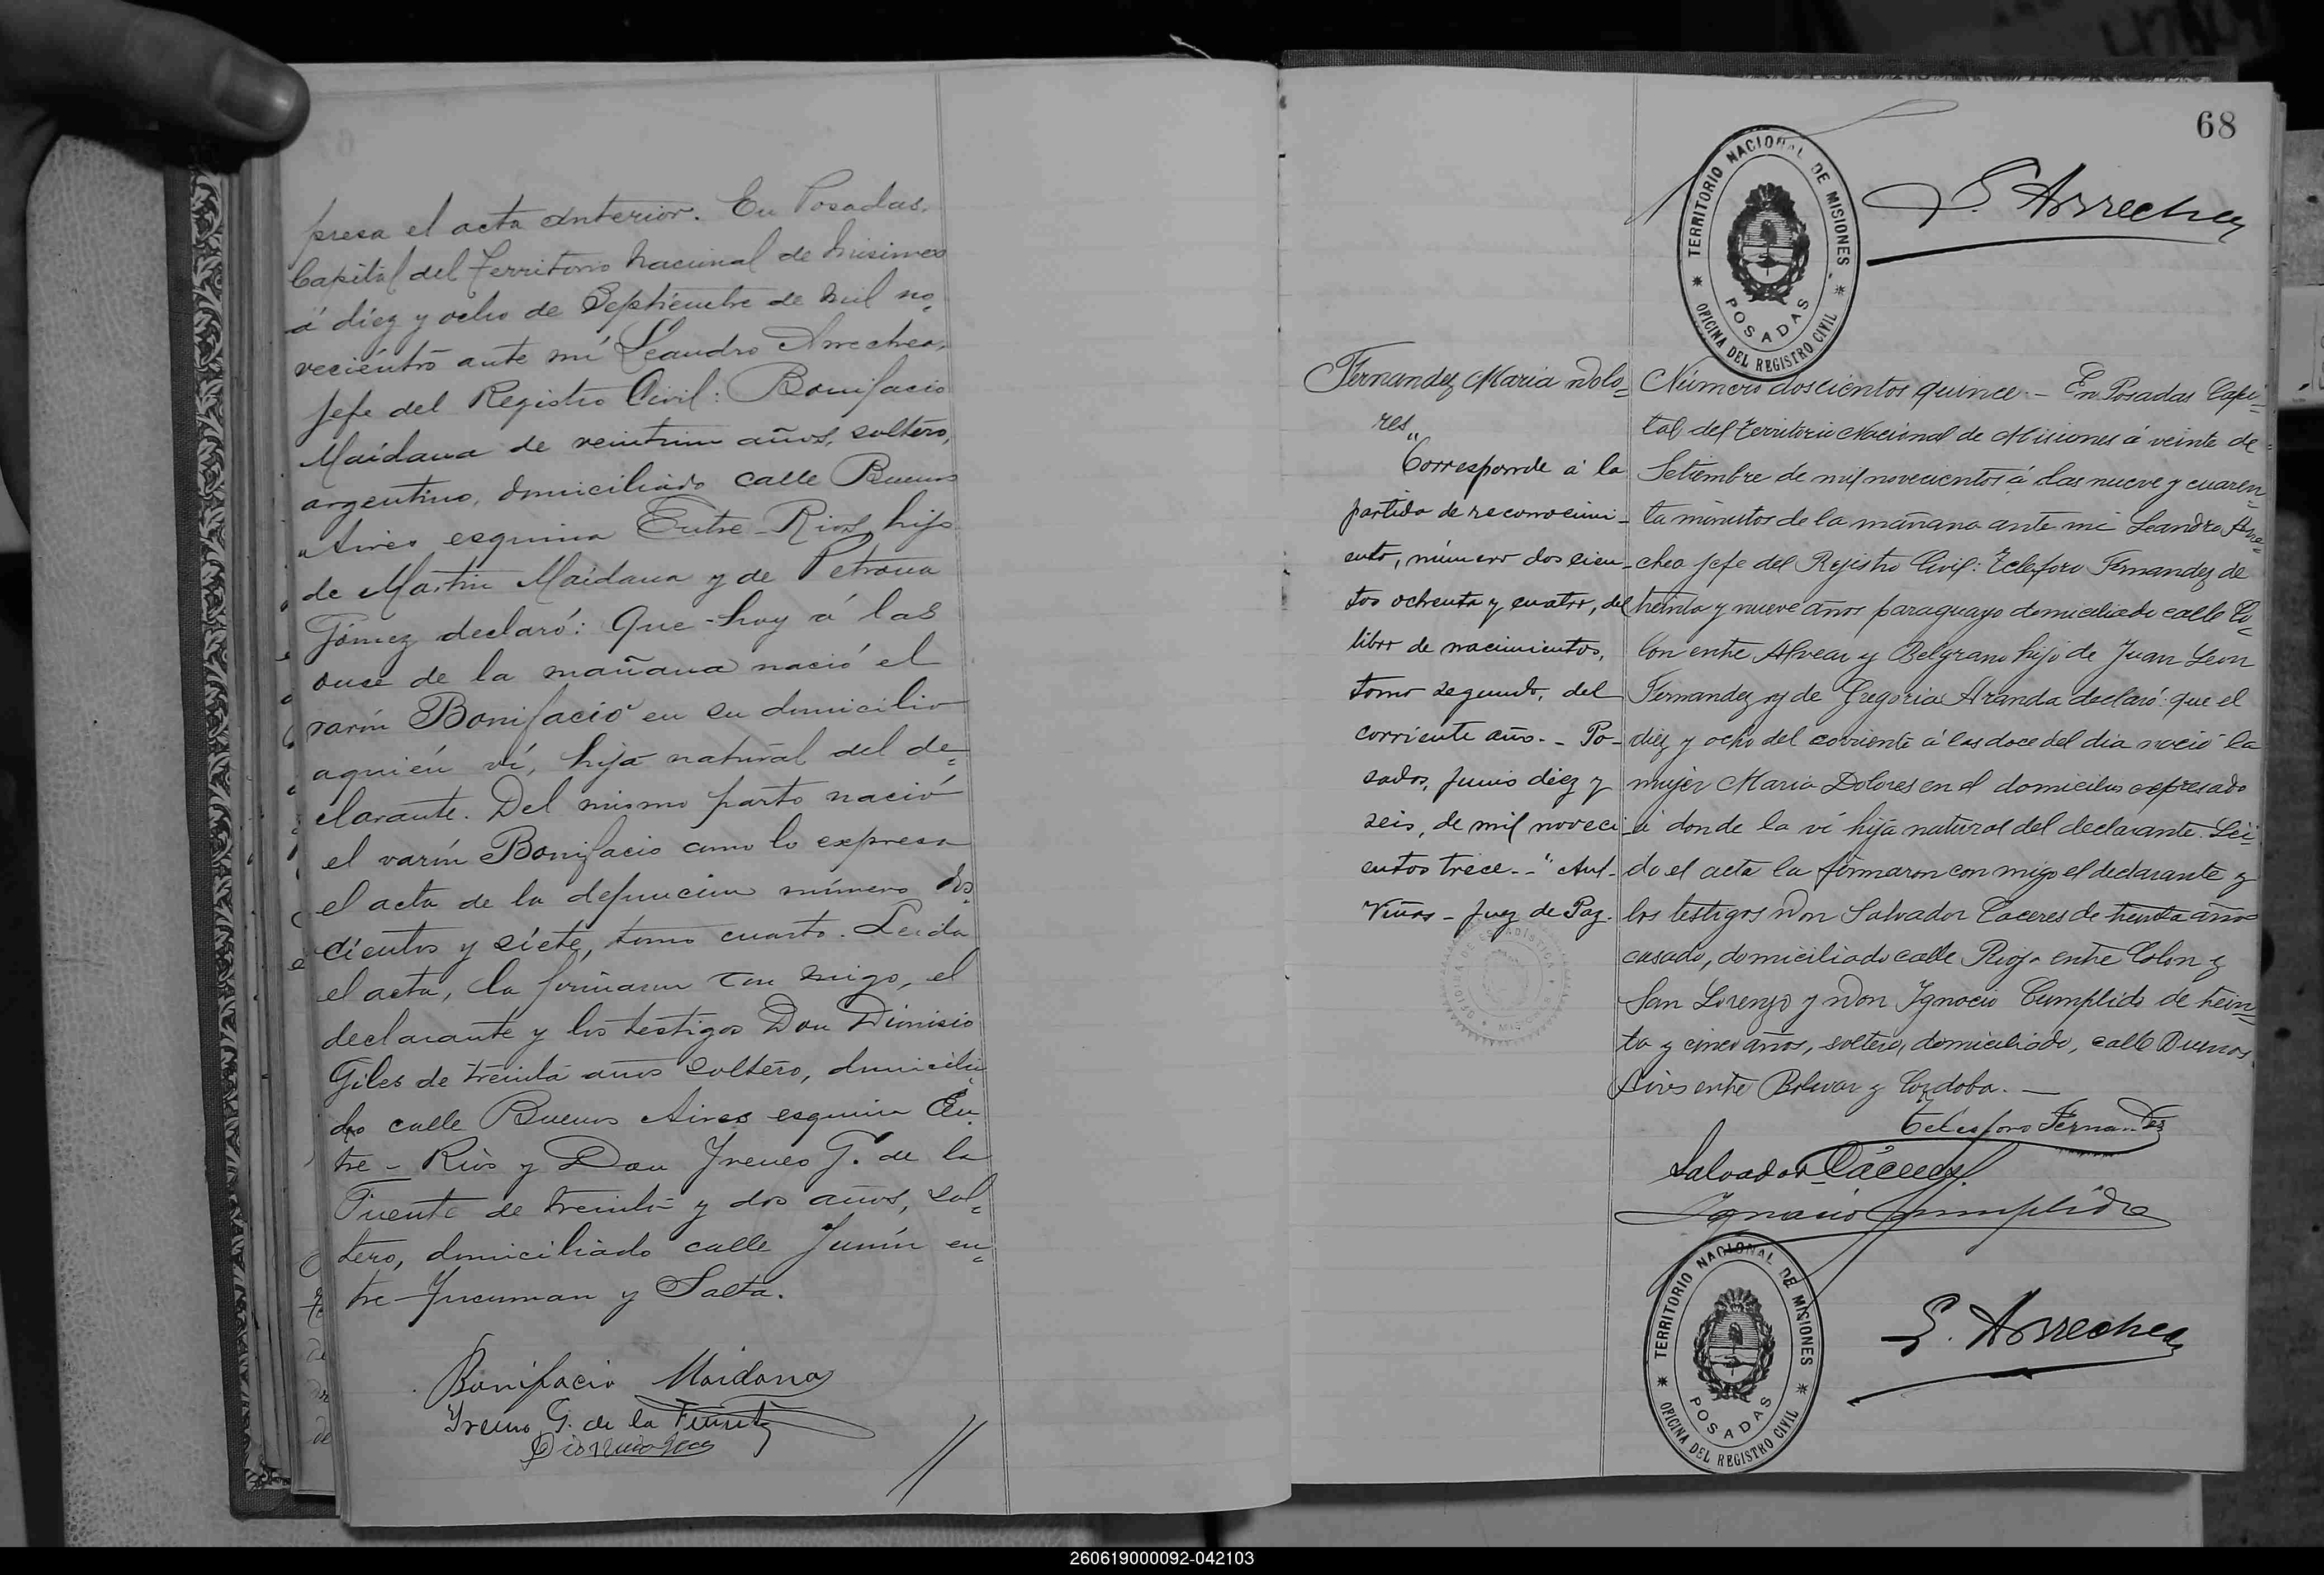 presa el acta anterior. En Posadas,
Capital del Territorio Nacional de Misiones
á diez y ocho de Septiembre de mil no-
vecientos ante mí Leandro Arrechea,
Jefe del Registro Civil: Bonifacio
Maidana de veintiun años, soltero,
argentino, domiciliado calle Buenos
Aires esquina Entre-Rios, hijo
de Martin Maidana y de Petrona
Gómez declaró: Que hoy á las
once de la mañana nació el
varón Bonifacio en su domicilio
aquién ví, hijo natural del de-
clarante. Del mismo parto nació
el varón Bonifacio como lo expresa
el acta de la defuncion número dos-
cientos y siete, tomo cuarto. Leida
el acta, la firmaron con migo, el
declarante y los testigos Don Dionisio
Giles de treinta años soltero, domicilia-
do calle Buenos Aires esquina En-
tre-Rios y Don Ireneo G. de la
Fuente de treinta y dos años, sol-
tero, domiciliado calle Junín en-
tre Tucuman y Salta.
Bonifacio Maidana
Ireneo G. de la Fuente
68
TERRITORIO NACIONAL DE MISIONES
POSADAS
OFICINA DEL REGISTRO CIVIL
L. Arrechea
Fernandez Maria Dolo-
res
"Corresponde á la
partida de reconocimi-
ento, número doscien-
tos ochenta y cuatro, del
libro de nacimientos,
tomo segundo, del
corriente año. - Po-
sadas, Junio diez y
seis, de mil noveci-
entos trece. -" Aul-
Viñas - Juez de Paz.
Número doscientos quince. - En Posadas Capi-
tal del Territorio Nacional de Misiones á veinte de
Setiembre de mil novecientos á las nueve y cuaren-
ta minutos de la mañana ante mi Leandro Arre-
chea Jefe del Rejistro Civil: Telesforo Fernandez de
treinta y nueve años paraguayo domiciliado calle Co-
lon entre Alvear y Belgrano hijo de Juan Leon
Fernandez y de Gregoria Aranda declaró: que el
diez y ocho del corriente á las doce del dia nació la
mujer Maria Dolores en el domicilio expresado
á donde la ví hija natural del declarante. Lei-
do el acta la firmaron con migo el declarante y
los testigos Don Salvador Caceres de treinta años
casado, domiciliado calle Rioja entre Colon y
San Lorenzo y Don Ignacio Cumplido de trein-
ta y cinco años, soltero, domiciliado, calle Buenos
Aires entre Bolivar y Cordoba. -
Telesforo Fernandez
Salvador Cáceres
Ignacio Cumplido
TERRITORIO NACIONAL DE MISIONES
POSADAS
OFICINA DEL REGISTRO CIVIL
L. Arrechea
260619000092-042103